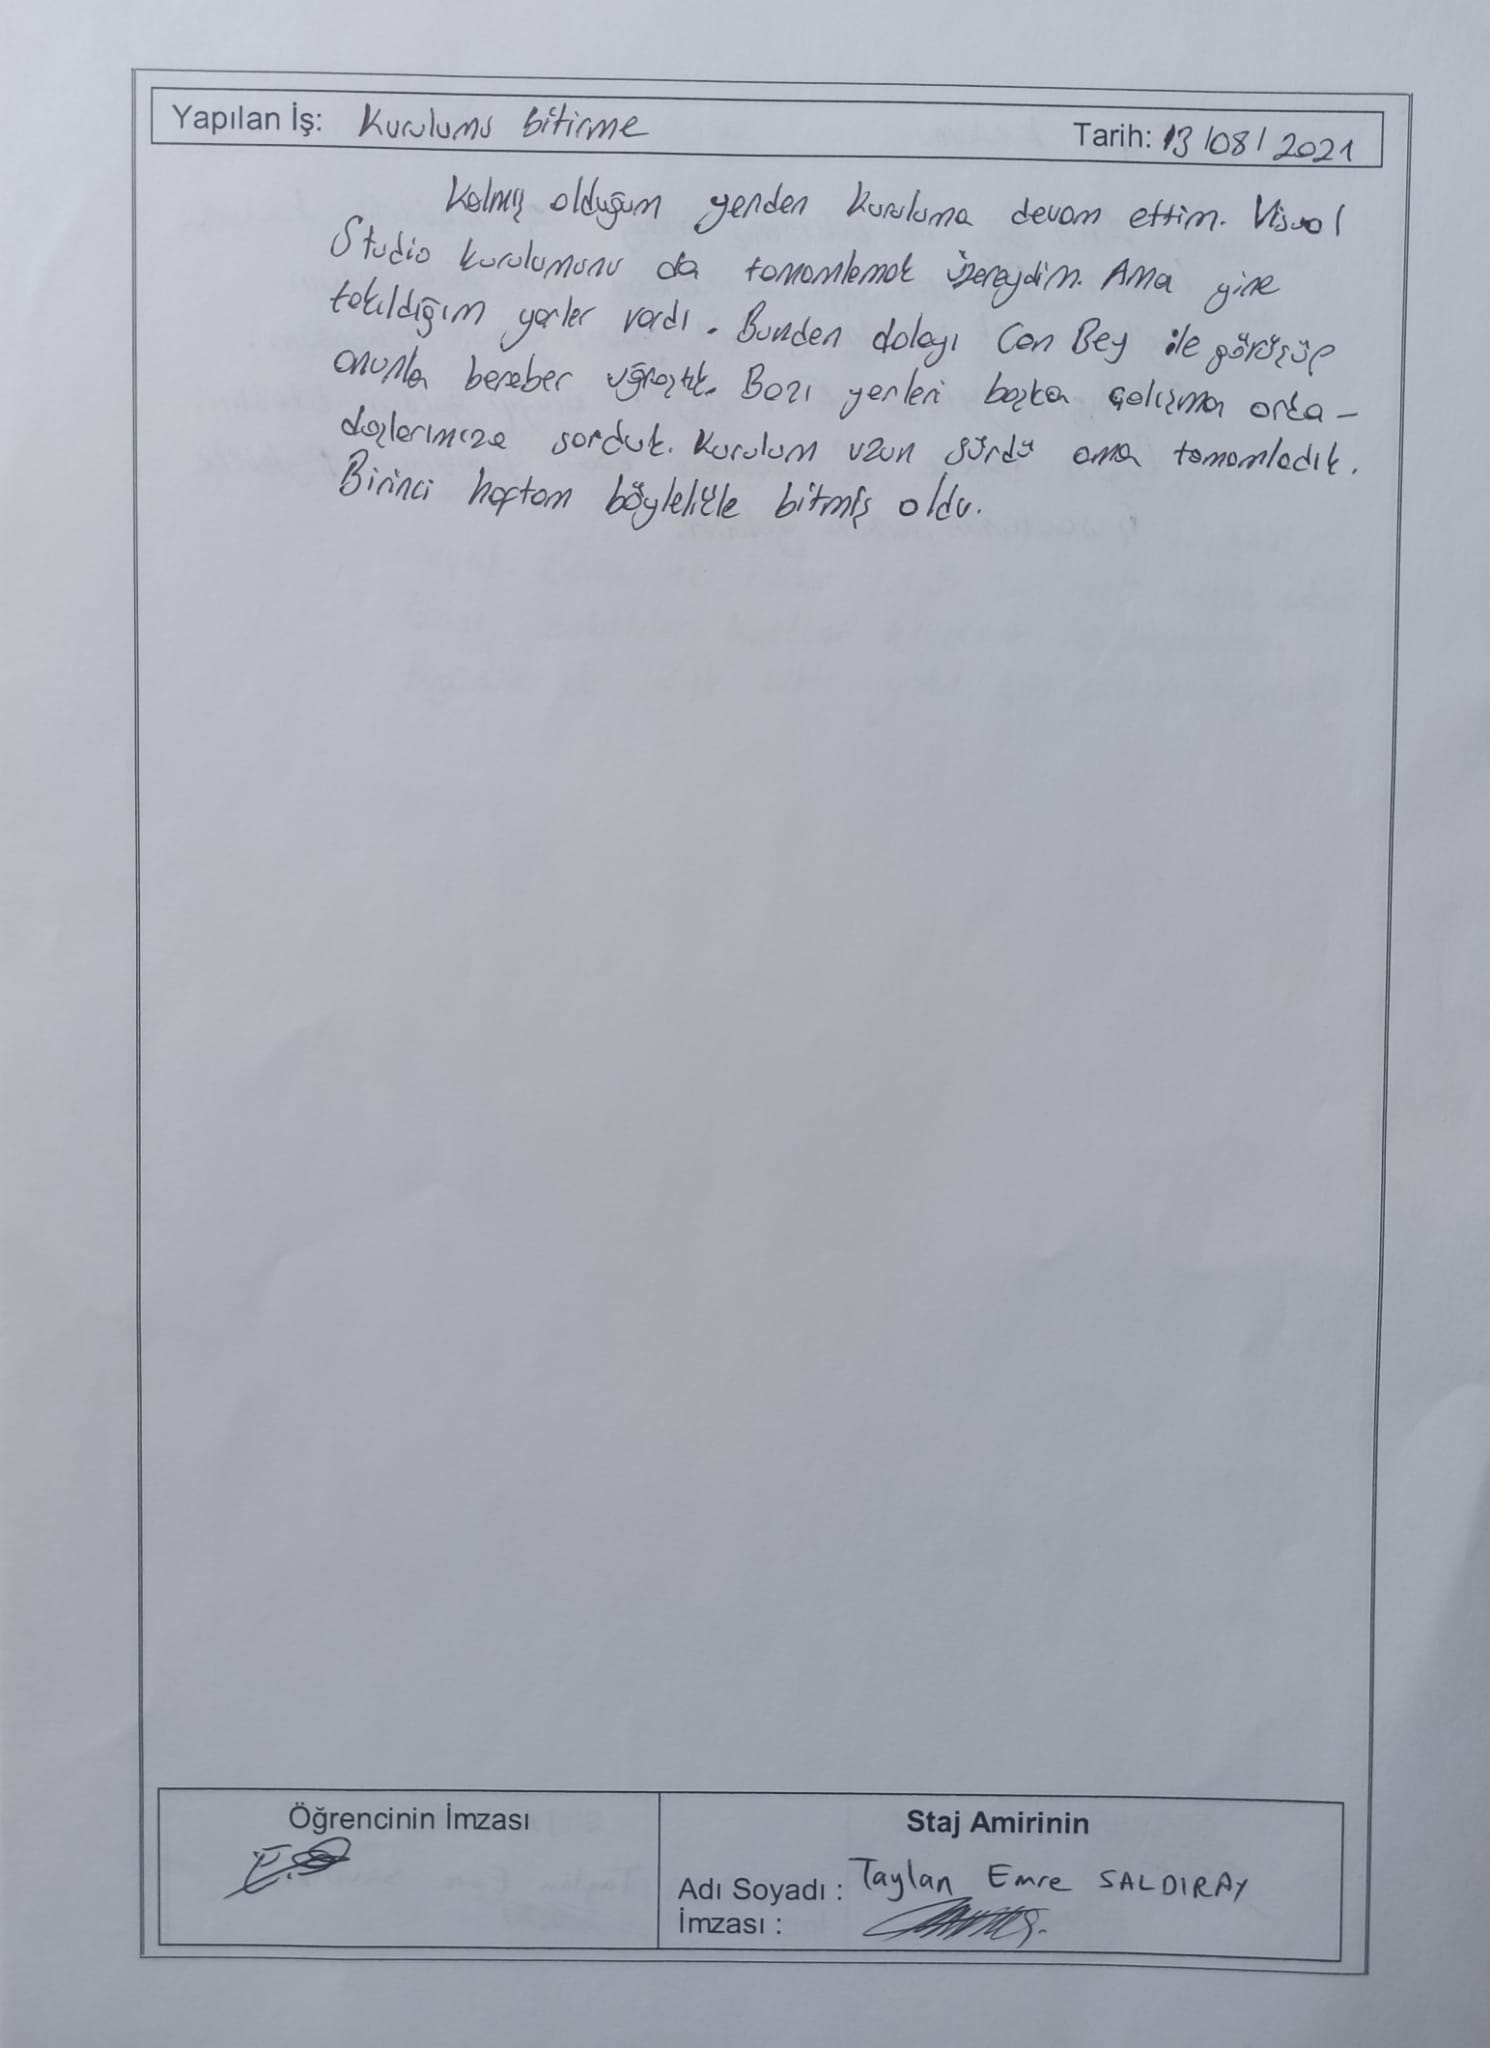 Yapılan İş: Kurulumu bitirme
Tarih: 13/08/2021
Kalmış olduğum yerden kuruluma devam ettim. Visual
Studio kurulumunu da tamamlamak üzereydim. Ama yine
takıldığım yerler vardı. Bundan dolayı Can Bey ile görüşüp
onunla beraber uğraştık. Bazı yerleri başka çalışma arka-
daşlarımıza sorduk. Kurulum uzun sürdü ama tamamladık.
Birinci haftam böylelikle bitmiş oldu.
Öğrencinin İmzası
Staj Amirinin
Adı Soyadı : Taylan Emre SALDIRAY
İmzası :